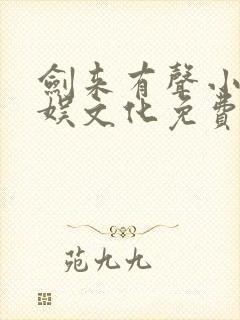 劍来有聲小
娛文化免費
苑九九